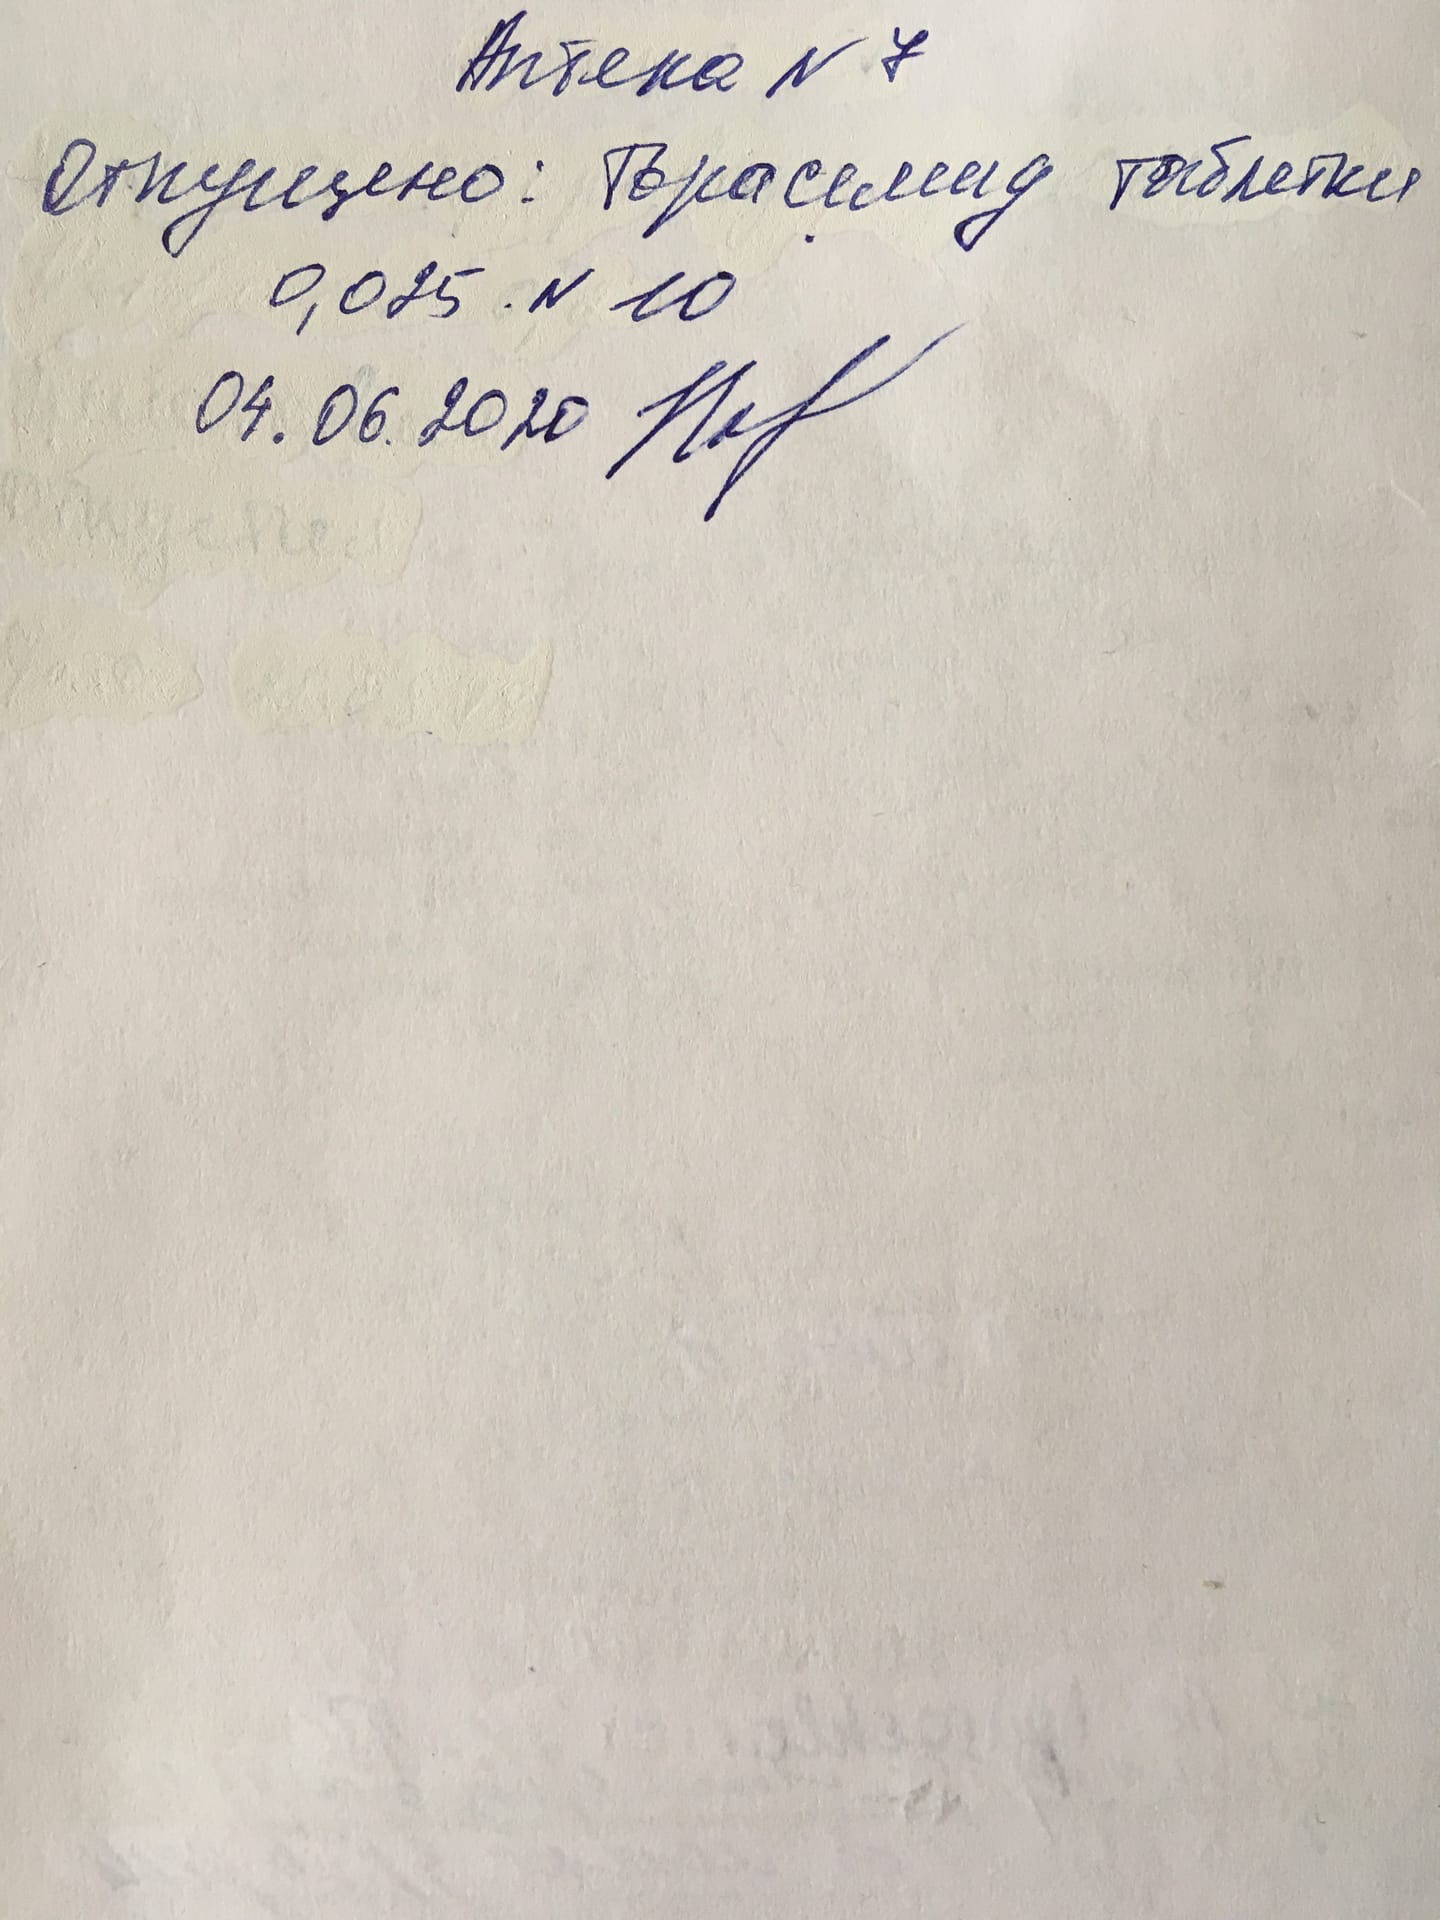 Аптека N 7
Отпущено: Торасимид таблетки
0,025 N 10
04.06.2020